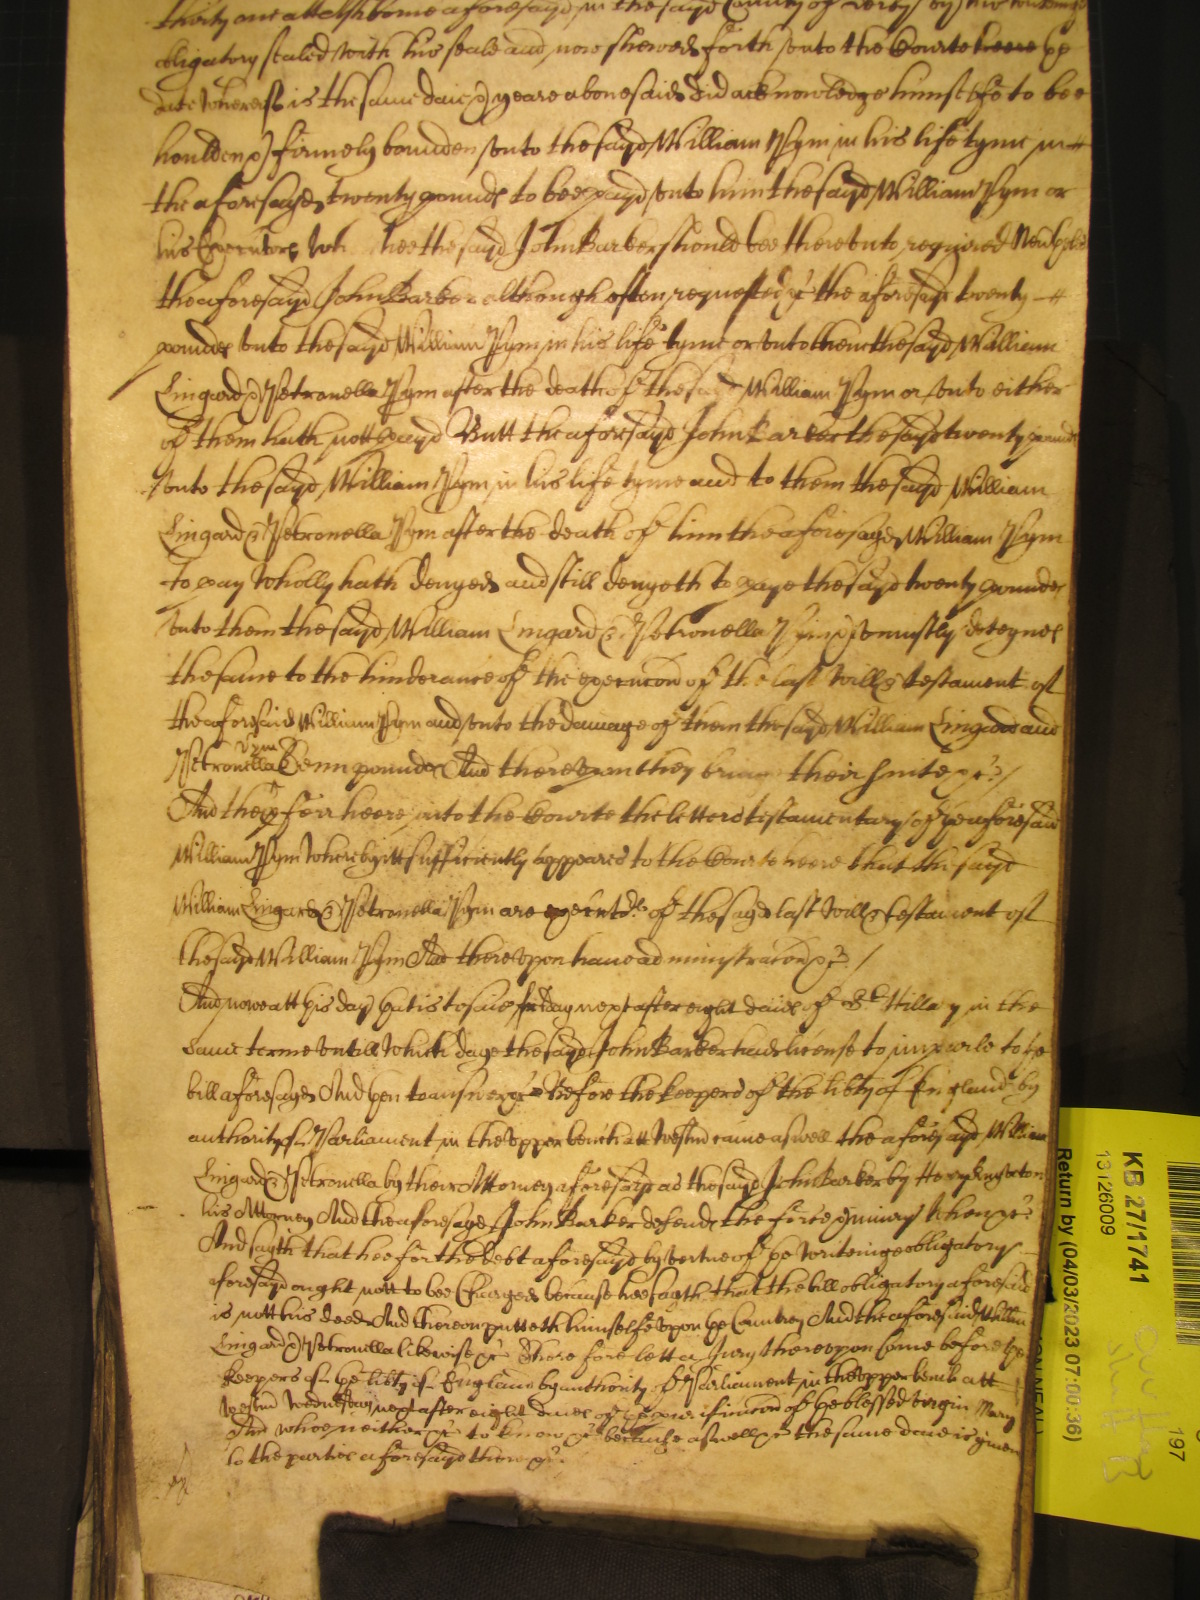 thirty one att Ashborne aforesayd in the sayd County of Derby by his writeinge
obligatory sealed with his seale and now shewed forth unto the Courte heere ye
date whereof is the same daie & yeare abovesaid did acknowledge himselfe to bee
houlden & firmely bounden unto the sayd William Pym in his life tyme in
the aforesayd twenty pounds to bee payd unto him the sayd William Pym or
his Executors wh hee the sayd John Barker should bee thereunto required
the aforesayd John Barker although often requested &c the aforesayd twenty
pounds unto the sayd William Pym in his life tyme or unto them the sayd William
Lingard & Petronella Pym after the death of the sayd William Pym or unto either
of them hath nott payd Butt the aforesayd John Barker the sayd twenty pounds
unto the sayd William Pym in his life tyme and to them the sayd William
Lingard & Petronella Pym after the death of him the aforesayd William Pym
to pay wholly hath denyed and still denyeth to paye the sayd twenty pounds
unto them the sayd William Lingard & Petronella Pym & unjustly deteynes
the same to the hinderance of the execucon of the last will & testament of
the aforesaid William Pym and unto the damage of them the sayd William Lingard and
Petronella Pym Tenn pounds And thereupon they bringe their suite &c /
And they offer heere into the Courte the letters testamentary of ye aforesaid
William Pym whereby itt sufficiently appeares to the Courte heere that the sayd
William Lingard & Petronella Pym are executors of the sayd last will & testament of
the sayd William Pym And thereupon have administracon &c /
And nowe att this day that is to saie fryday next after eight daies of St Hillary in the
same terme untill which daye the sayd John Barker had license to imparle to ye
bill aforesayd And then to answer &c Before the keepers of the libty of England by
authority of Parliament in the upper bench att Westm came aswell the aforesayd William
Lingard & Petronella by their Attorney aforesayd as the sayd John Barker by
his Attorney And the aforesayd John Barker defends the force & iniury when &c
And sayth that hee for the debt aforesayd by vertue of ye writeinge obligatory
foresayd ought nott to bee Charged because hee sayth that the bill obligatory aforesaid
is nott his deed And thereon putteth himselfe upon ye Countrey And the aforesaid Willm
Lingard & Petronella likewise &c Therefore lett a Jury thereupon Come before the
keepers of ye libty of England by authority of Parliament in the upper bench att
Westm Wednesday next after eight daies of ye purificacon of the blessed virgin Mary
And whoe neither &c to know &c because aswell &c the same daie is given
to the parties aforesayd there &c
KB 27/1741
13126009
Return by (04/03/2023 07:00:36)
197